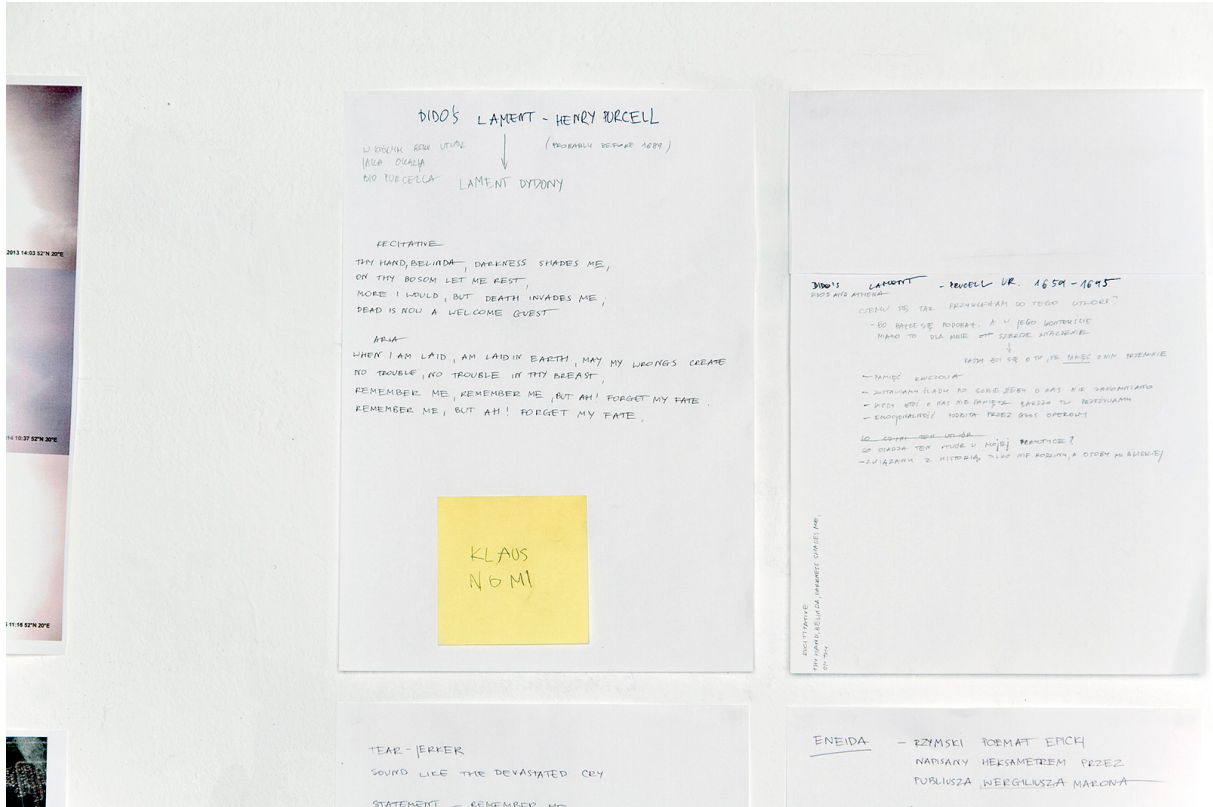 2013 14:03 52°N 20°E
10:37 52°N 20°E
11:16 52°N 20°E
DIDO'S LAMENT - HENRY PURCELL
(PROBABLY BEFORE 1689)
W UTWÓR
JAKA OKAZJA
BIO PURCELLA
LAMENT DYDONY
RECITATIVE
THY HAND, BELINDA, DARKNESS SHADES ME,
ON THY BOSOM LET ME REST,
MORE I WOULD, BUT DEATH INVADES ME,
DEAD IS NOW A WELCOME GUEST
ARIA
WHEN I AM LAID, AM LAID IN EARTH, MAY MY WRONGS CREATE
NO TROUBLE, NO TROUBLE IN THY BREAST,
REMEMBER ME, REMEMBER ME, BUT AH! FORGET MY FATE.
REMEMBER ME, BUT AH! FORGET MY FATE.
KLAUS
NOMI
DIDO'S LAMENT - PRUCELL UR. 1659-1695
CZEMU SIĘ TAK DO TEGO UTWORU
- BO SIĘ PODOBAŁ. A W JEGO KONTEKŚCIE
MIAŁO TO DLA MNIE SZERSZE ZNACZENIE
KAŻDY BOI SIĘ O TO, ŻE PAMIĘĆ O NIM PRZEMINIE
- PAMIĘĆ
- ZOSTAWIAMY ŚLADY PO SOBIE ŻEBY O NAS NIE ZAPOMNIANO
- KIEDY KTOŚ O NAS NIE PAMIĘTA BARDZO TO PRZEŻYWAMY
- EMOCJONALNOŚĆ PRZEZ GŁOS OPEROWY
CO TEN UTWÓR
CO OZNACZA TEN UTWÓR W MOJEJ PRAKTYCE?
- ZWIĄZANY Z HISTORIĄ, TYLKO NIE RODZINY, A OSOBY MI BLISKIEJ
THY HAND, BELINDA, DARKNESS SHADES ME,
ON THY
TEAR-JERKER
SOUND LIKE THE DEVASTATED CRY
STATEMENT - REMEMBER ME
ENEIDA - RZYMSKI POEMAT EPICKI
NAPISANY HEKSAMETREM PRZEZ
PUBLIUSZA WERGILIUSZA MARONA